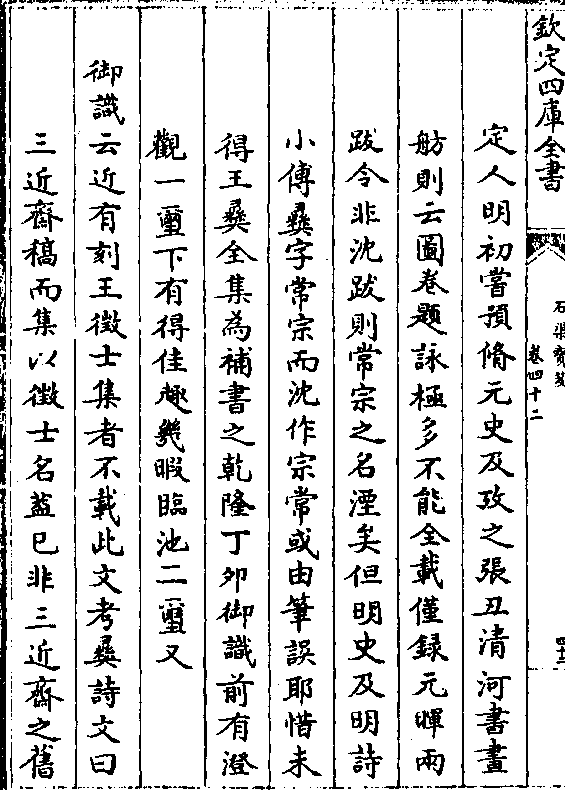 欽定四庫全書
石渠寶笈
卷四十二
四十三
定人明初嘗預脩元史及攷之張丑清河書畫
舫則云圖卷題詠極多不能全載僅録元暉兩
跋令非沈跋則常宗之名湮矣但明史及明詩
小傳彝字常宗而沈作宗常或由筆誤耶惜未
得王彝全集為補書之乾隆丁夘御識前有澄
觀一璽下有得佳趣幾暇臨池二璽又
御識云近有刻王徴士集者不載此文考彝詩文曰
三近齋稿而集以徴士名蓋已非三近齋之舊